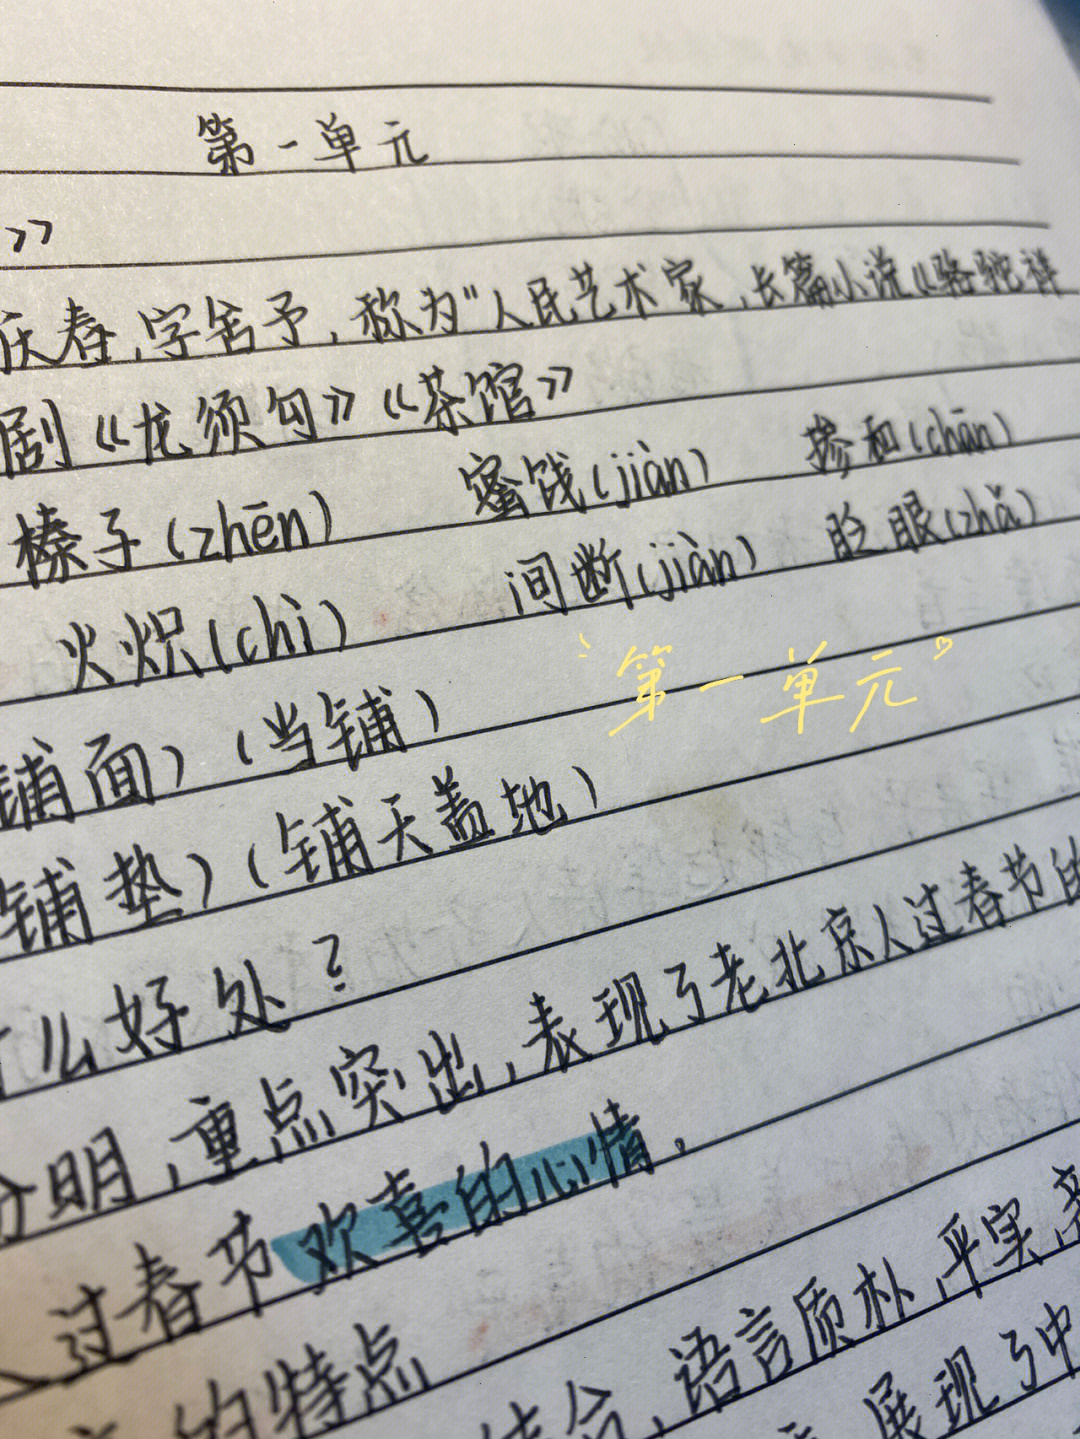 第一单元
》
庆春,字舍予,称为"人民艺术家,长篇小说《骆驼祥
剧《龙须勾》《茶馆》
榛子(zhēn) 蜜饯(jiàn) 掺和(chān)
火炽(chì) 间断(jiàn) 眨眼(zhǎ)
铺面)(当铺)
"第一单元"
铺垫)(铺天盖地)
什么好处?
分明,重点突出,表现了老北京人过春节的
过春节欢喜的心情.
的特点
结合,语言质朴,平实,亲
展现了中